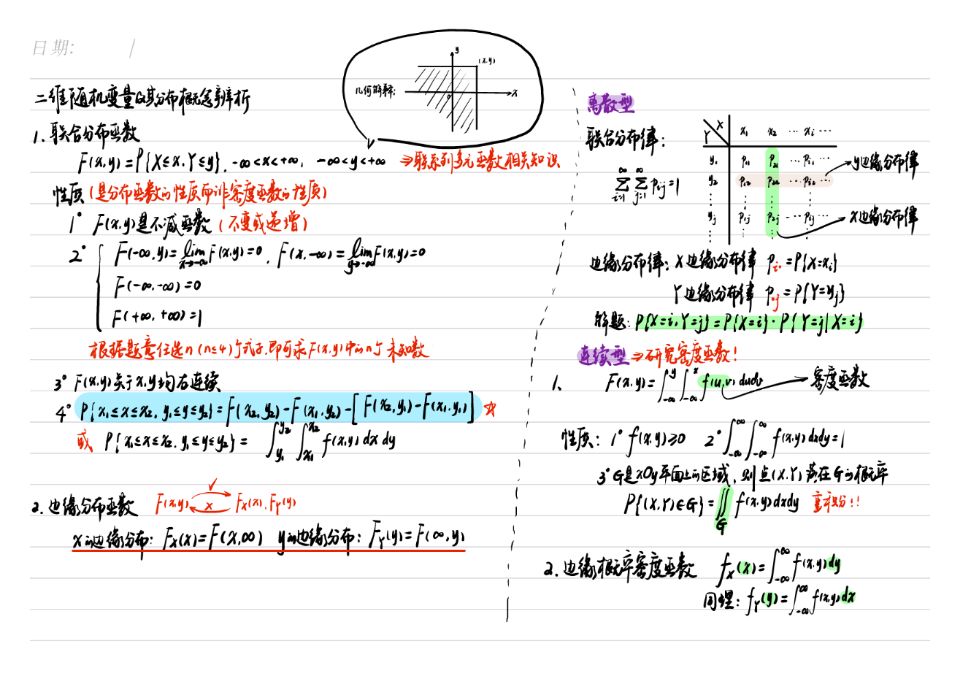 日期: /
二维随机变量及其分布概念辨析
几何解释:
y
(x,y)
x
1. 联合分布函数
F(x,y)=P{X≤x,Y≤y}, -∞<x<+∞, -∞<y<+∞ ⇒联系到多元函数相关知识
性质(是分布函数的性质而非密度函数的性质)
1° F(x,y)是不减函数(不变或递增)
2° { F(-∞,y)=lim x→-∞ F(x,y)=0, F(x,-∞)=lim y→-∞ F(x,y)=0
F(-∞,-∞)=0
F(+∞,+∞)=1
根据题意任选n(n≤4)个式子,即可求F(x,y)中的n个未知数
3° F(x,y)关于x,y均右连续
4° P{x₁≤x≤x₂, y₁≤y≤y₂}=F(x₂,y₂)-F(x₁,y₂)-[F(x₂,y₁)-F(x₁,y₁)] ☆
或 P{x₁≤x≤x₂, y₁≤y≤y₂}=∫_{y₁}^{y₂}∫_{x₁}^{x₂} f(x,y) dx dy
2. 边缘分布函数 F(x,y) ✓ × F_X(x), F_Y(y)
X的边缘分布: F_X(x)=F(x,∞) Y的边缘分布: F_Y(y)=F(∞,y)
离散型
联合分布律:
∑_{i=1}^{∞} ∑_{j=1}^{∞} p_{ij}=1
Y X x₁ x₂ ··· x_i ···
y₁ p₁₁ p₂₁ ··· p_{i1} ···
y₂ p₁₂ p₂₂ ··· p_{i2} ···
⋮ ⋮ ⋮ ⋮
y_j p_{1j} p_{2j} ··· p_{ij} ···
⋮ ⋮ ⋮ ⋮
y边缘分布律
x边缘分布律
边缘分布律: X边缘分布律 p_{i·}=P{X=x_i}
Y边缘分布律 p_{·j}=P{Y=y_j}
解题: P{X=i,Y=j}=P{X=i}·P{Y=j|X=i}
连续型⇒研究密度函数!
1、 F(x,y)=∫_{-∞}^{y}∫_{-∞}^{x} f(u,v) dudv → 密度函数
性质: 1° f(x,y)≥0 2° ∫_{-∞}^{∞}∫_{-∞}^{∞} f(x,y)dxdy=1
3° G是xOy平面上的区域, 则点(X,Y)落在G的概率
P{(X,Y)∈G}=∬_G f(x,y)dxdy 重积分!!
2. 边缘概率密度函数 f_X(x)=∫_{-∞}^{∞} f(x,y)dy
同理: f_Y(y)=∫_{-∞}^{∞} f(x,y)dx